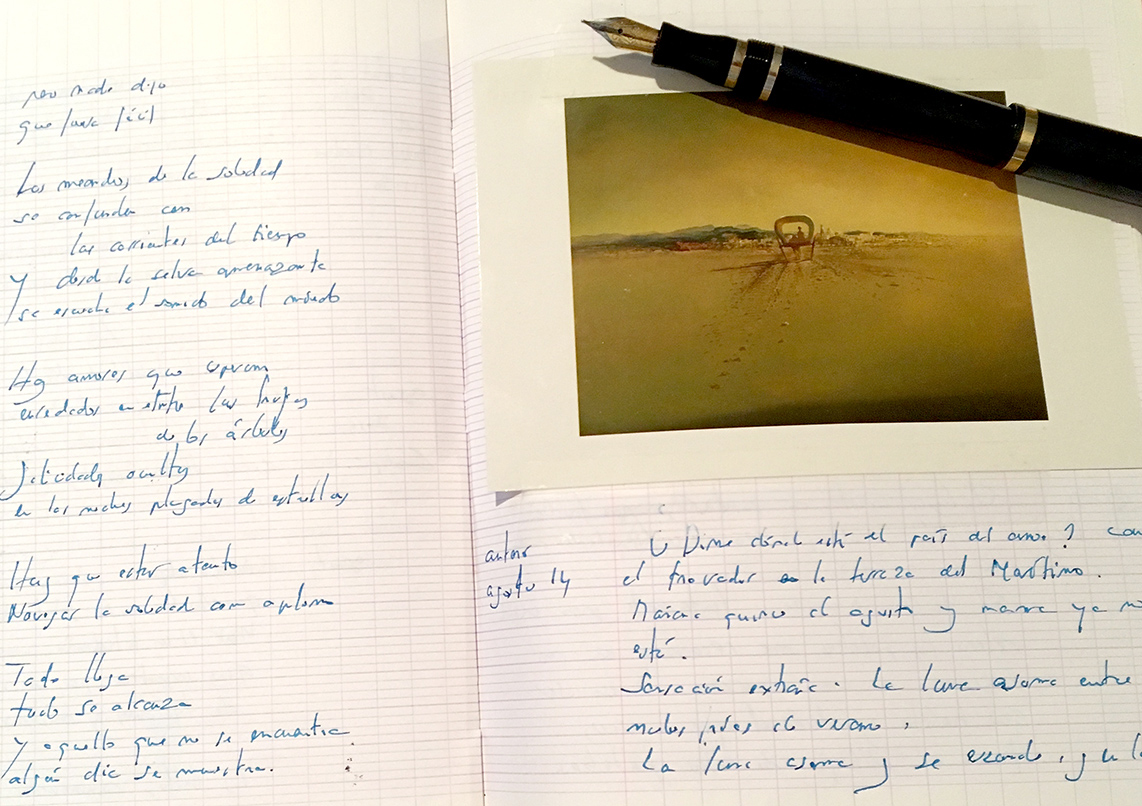 pero nadie dijo
que fuera fácil
Los meandros de la soledad
se confunden con
las corrientes del tiempo
y desde la selva amenazante
se escucha el sonido del miedo
Hay amores que
enredados entre las hojas
de los árboles
ocultas
en las noches plagadas de estrellas
Hay que estar atento
Navegar la soledad con aplomo
Todo llega
todo se alcanza
y aquello que no se encuentra
algún día se muestra.
agosto 14
¿Dime dónde está el país del amor?
el trovador en la terraza del Marítimo.
el agosto y mamá ya no
está.
Sensación extraña. La luna asoma entre
nubes de verano.
La luna asoma y se esconde, y